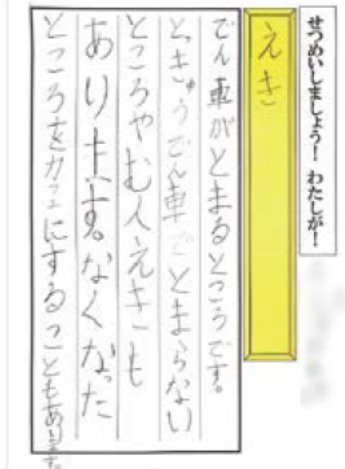 せつめいしましょう！ わたしが！
えき
でん車がとまるところです。
とっきゅうでん車でとまらない
ところやむ人えきも
あります。なくなった
ところをカフェにすることもあります。